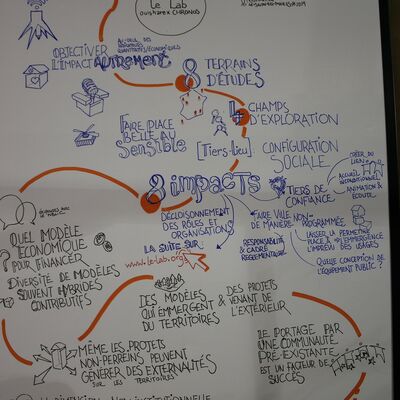 Le Lab
OUISHARE X CHRONOS
OBJECTIVER
L'IMPACT AUTREMENT
AU-DELÀ DES
QUANTITATIFS/ÉCONOMIQUES
8 TERRAINS
D'ÉTUDES
4 CHAMPS
D'EXPLORATION
FAIRE PLACE
BELLE AU
SENSIBLE
[TIERS-LIEU] : CONFIGURATION
SOCIALE
8 IMPACTS
TIERS DE
CONFIANCE
CRÉER DU
LIEN
ACCUEIL
INCONDITIONNEL
ANIMATION &
ÉCOUTE
DÉCLOISONNEMENT
DES RÔLES ET
ORGANISATIONS
FAIRE VILLE
DE MANIÈRE
NON-
PROGRAMMÉE
LAISSER LA
PLACE À
PERMETTRE
L'ÉMERGENCE
L'IMPRÉVU DES USAGES
RESPONSABILITÉ
& CADRE
RÉGLEMENTAIRE
QUELLE CONCEPTION DE
L'ÉQUIPEMENT PUBLIC ?
LA SUITE SUR :
www.le-lab.org
QUEL MODÈLE
ÉCONOMIQUE
POUR FINANCER
DIVERSITÉ DE MODÈLES
SOUVENT HYBRIDES
CONTRIBUTIFS
DES MODÈLES
QUI ÉMERGENT
DU TERRITOIRES
& DES PROJETS
VENANT DE
L'EXTÉRIEUR
MÊME LES PROJETS
NON-PÉRREINS PEUVENT
GÉNÉRER DES EXTERNALITÉS
SUR LES TERRITOIRES
LE PORTAGE PAR
UNE COMMUNAUTÉ
PRÉ-EXISTANTE
EST UN FACTEUR DE
SUCCÈS